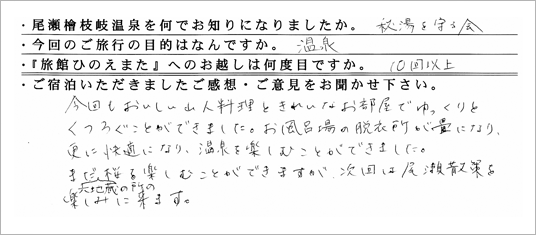 ・尾瀬檜枝岐温泉を何でお知りになりましたか。 秘湯を守る会
・今回のご旅行の目的はなんですか。 温泉
・『旅館ひのえまた』へのお越しは何度目ですか。 10回以上
・ご宿泊いただきましたご感想・ご意見をお聞かせ下さい。
今回もおいしい山人料理ときれいなお部屋でゆっくりと
くつろぐことができました。お風呂場の脱衣所が畳になり、
更に快適になり、温泉を楽しむことができました。
まだ桜を楽しむことができますが、次回は尾瀬散策を
六地蔵の所の
楽しみに来ます。